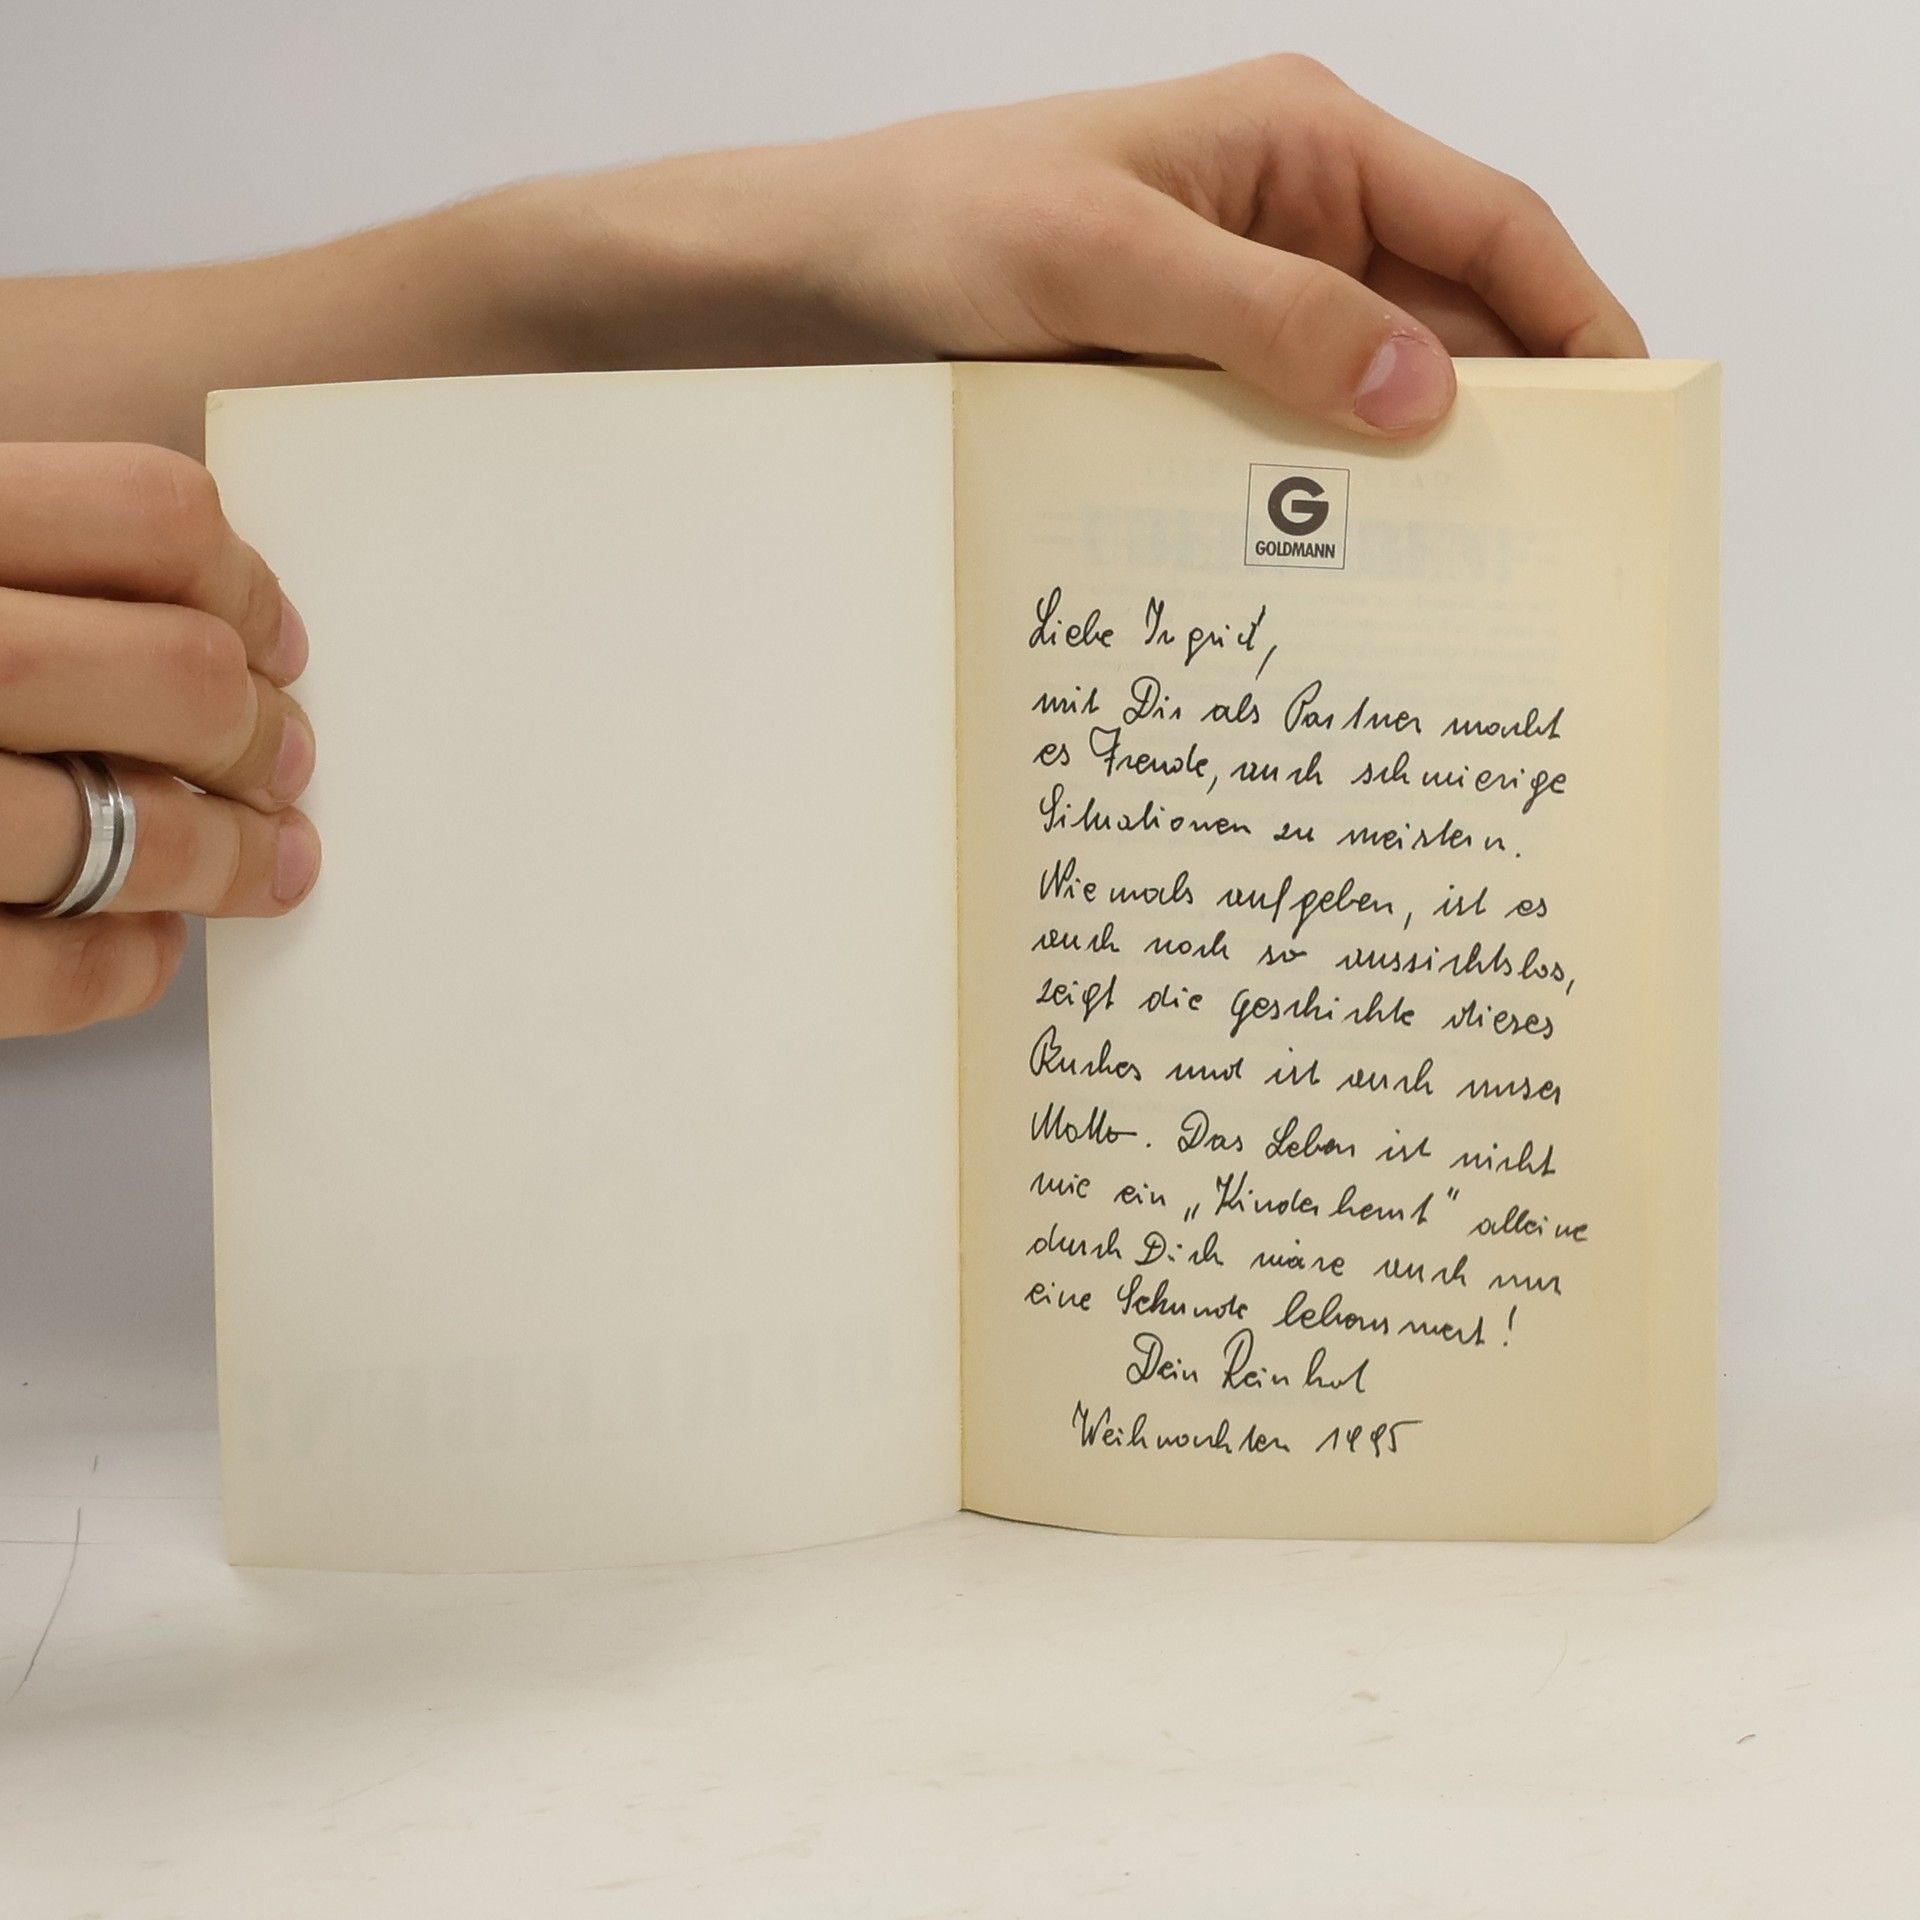 G
GOLDMANN
Liebe Ingrid,
mit Dir als Partner macht
es Freude, auch schwierige
Situationen zu meistern.
Niemals aufgeben, ist es
auch noch so aussichtslos,
zeigt die Geschichte dieses
Buches und ist auch unser
Motto. Das Leben ist nicht
wie ein „Kinderhemd" alleine
durch Dich wäre auch nur
eine Sekunde lebenswert!
Dein Reinhol
Weihnachten 1995